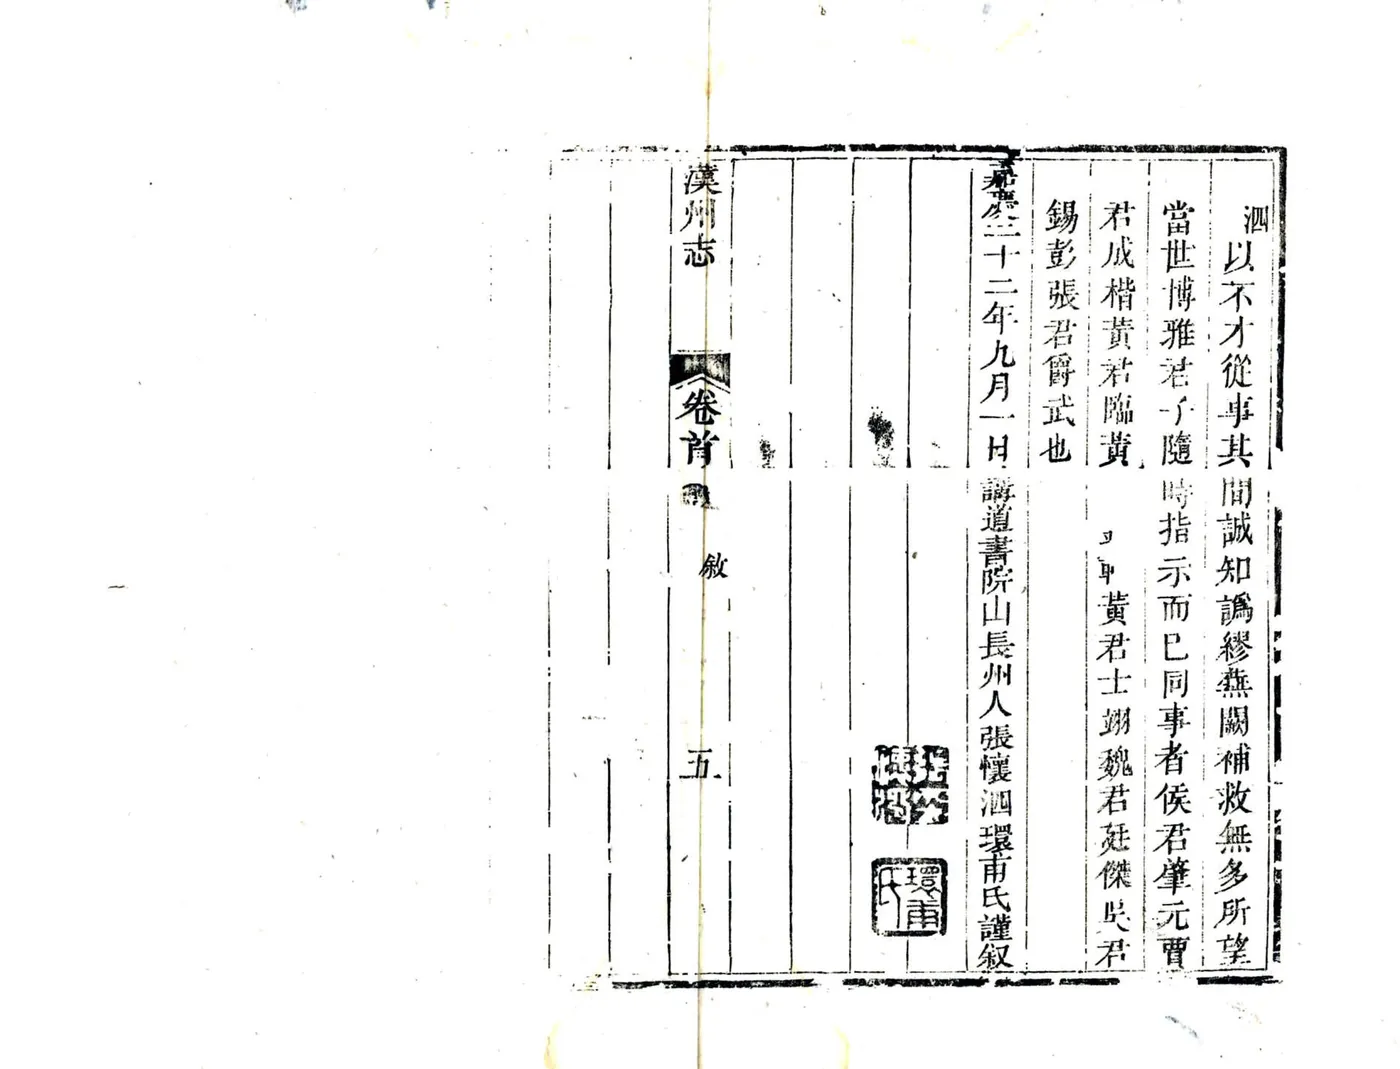 泗以不才從事其間誠知譌繆蕪闕補救無多所望
當世博雅君子隨時指示而已同事者侯君肇元曹
君成楷黃君臨黃黃君士翊魏君廷傑吳君
錫彭張君爵武也
嘉慶二十二年九月一日講道書院山長州人張懷泗環甫氏謹叙
環甫氏
漢州志
卷首
敘
五